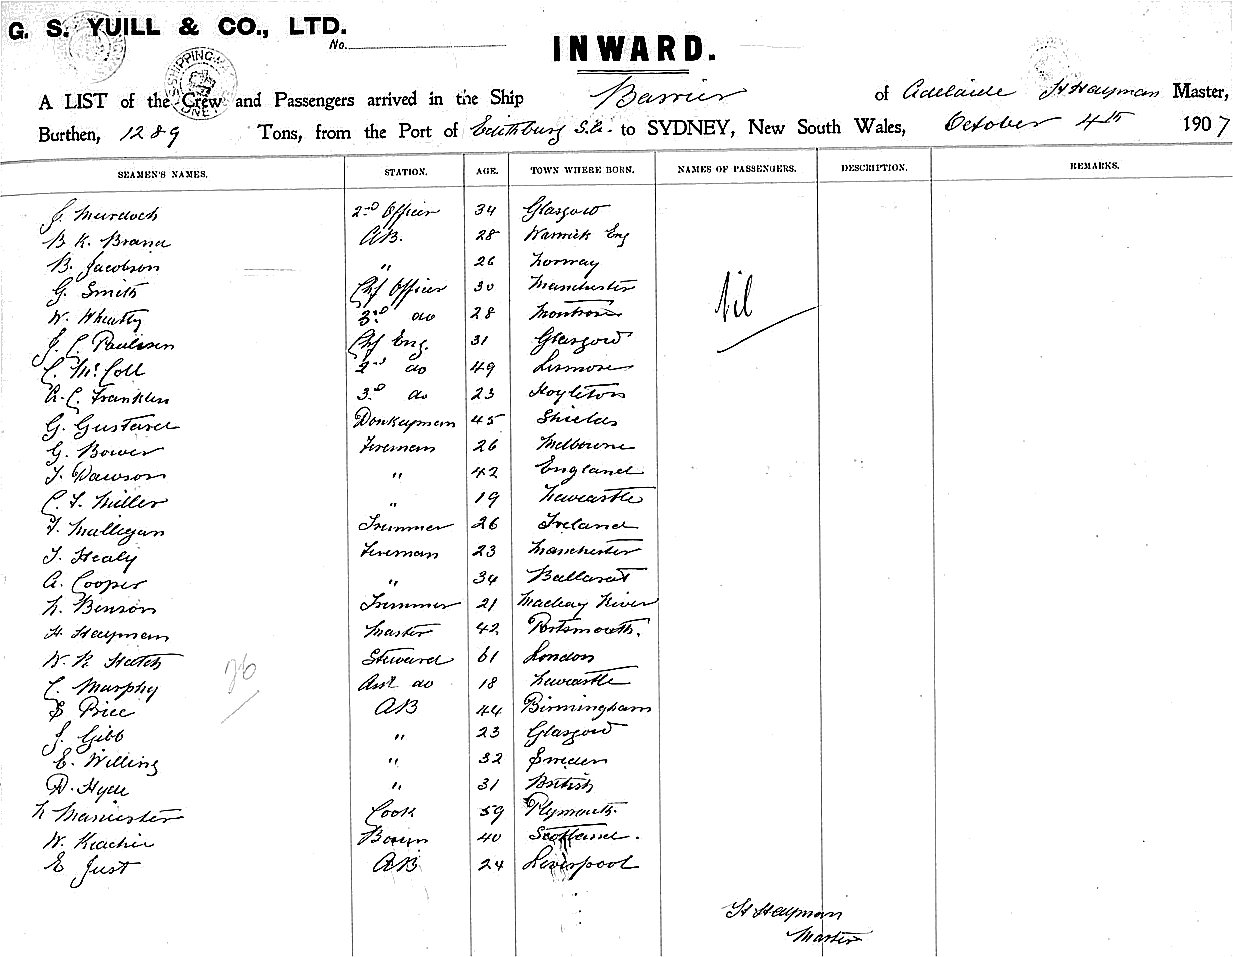 G. S. YUILL & CO., LTD.
No.
INWARD.
SHIPPING
A LIST of the Crew and Passengers arrived in the Ship Barrier of Adelaide H Hayman Master,
Burthen, 1289 Tons, from the Port of Edithburg S.a. to SYDNEY, New South Wales, October 4th 1907
SEAMEN'S NAMES. STATION. AGE. TOWN WHERE BORN. NAMES OF PASSENGERS. DESCRIPTION. REMARKS.
J. Murdoch 2nd Officer 34 Glasgow
B K. Brand AB. 28 Warwick Eng
B. Jacobson " 26 Norway
G. Smith Chf Officer 30 Manchester
Nil
W. Wheatly 3rd do 28 Montrose
J. C. Paulsen Chf Eng. 31 Glasgow
C. McColl 2nd do 49 Lismore
A. C. Franklin 3rd do 23 Hoyleton
G. Gustard Donkeyman 45 Shields
G. Bower Fireman 26 Melbourne
J. Dawson " 42 England
C. F. Miller " 19 Newcastle
T. Mulligan Trimmer 26 Ireland
T. Healy Fireman 23 Manchester
A. Cooper " 34 Ballarat
N. Benson Trimmer 21 Macleay River
H. Hayman Master 42 Portsmouth.
W. R. Hatch Steward 61 London
26
C. Murphy Asst do 18 Newcastle
S Price AB 44 Birmingham
J. Gibb " 23 Glasgow
E. Willing " 32 Sweden
D. Hyde " 31 British
Cook 59 Plymouth.
W. Bosun 40 Scotland.
E Just AB 24 Liverpool
H Hayman
Master